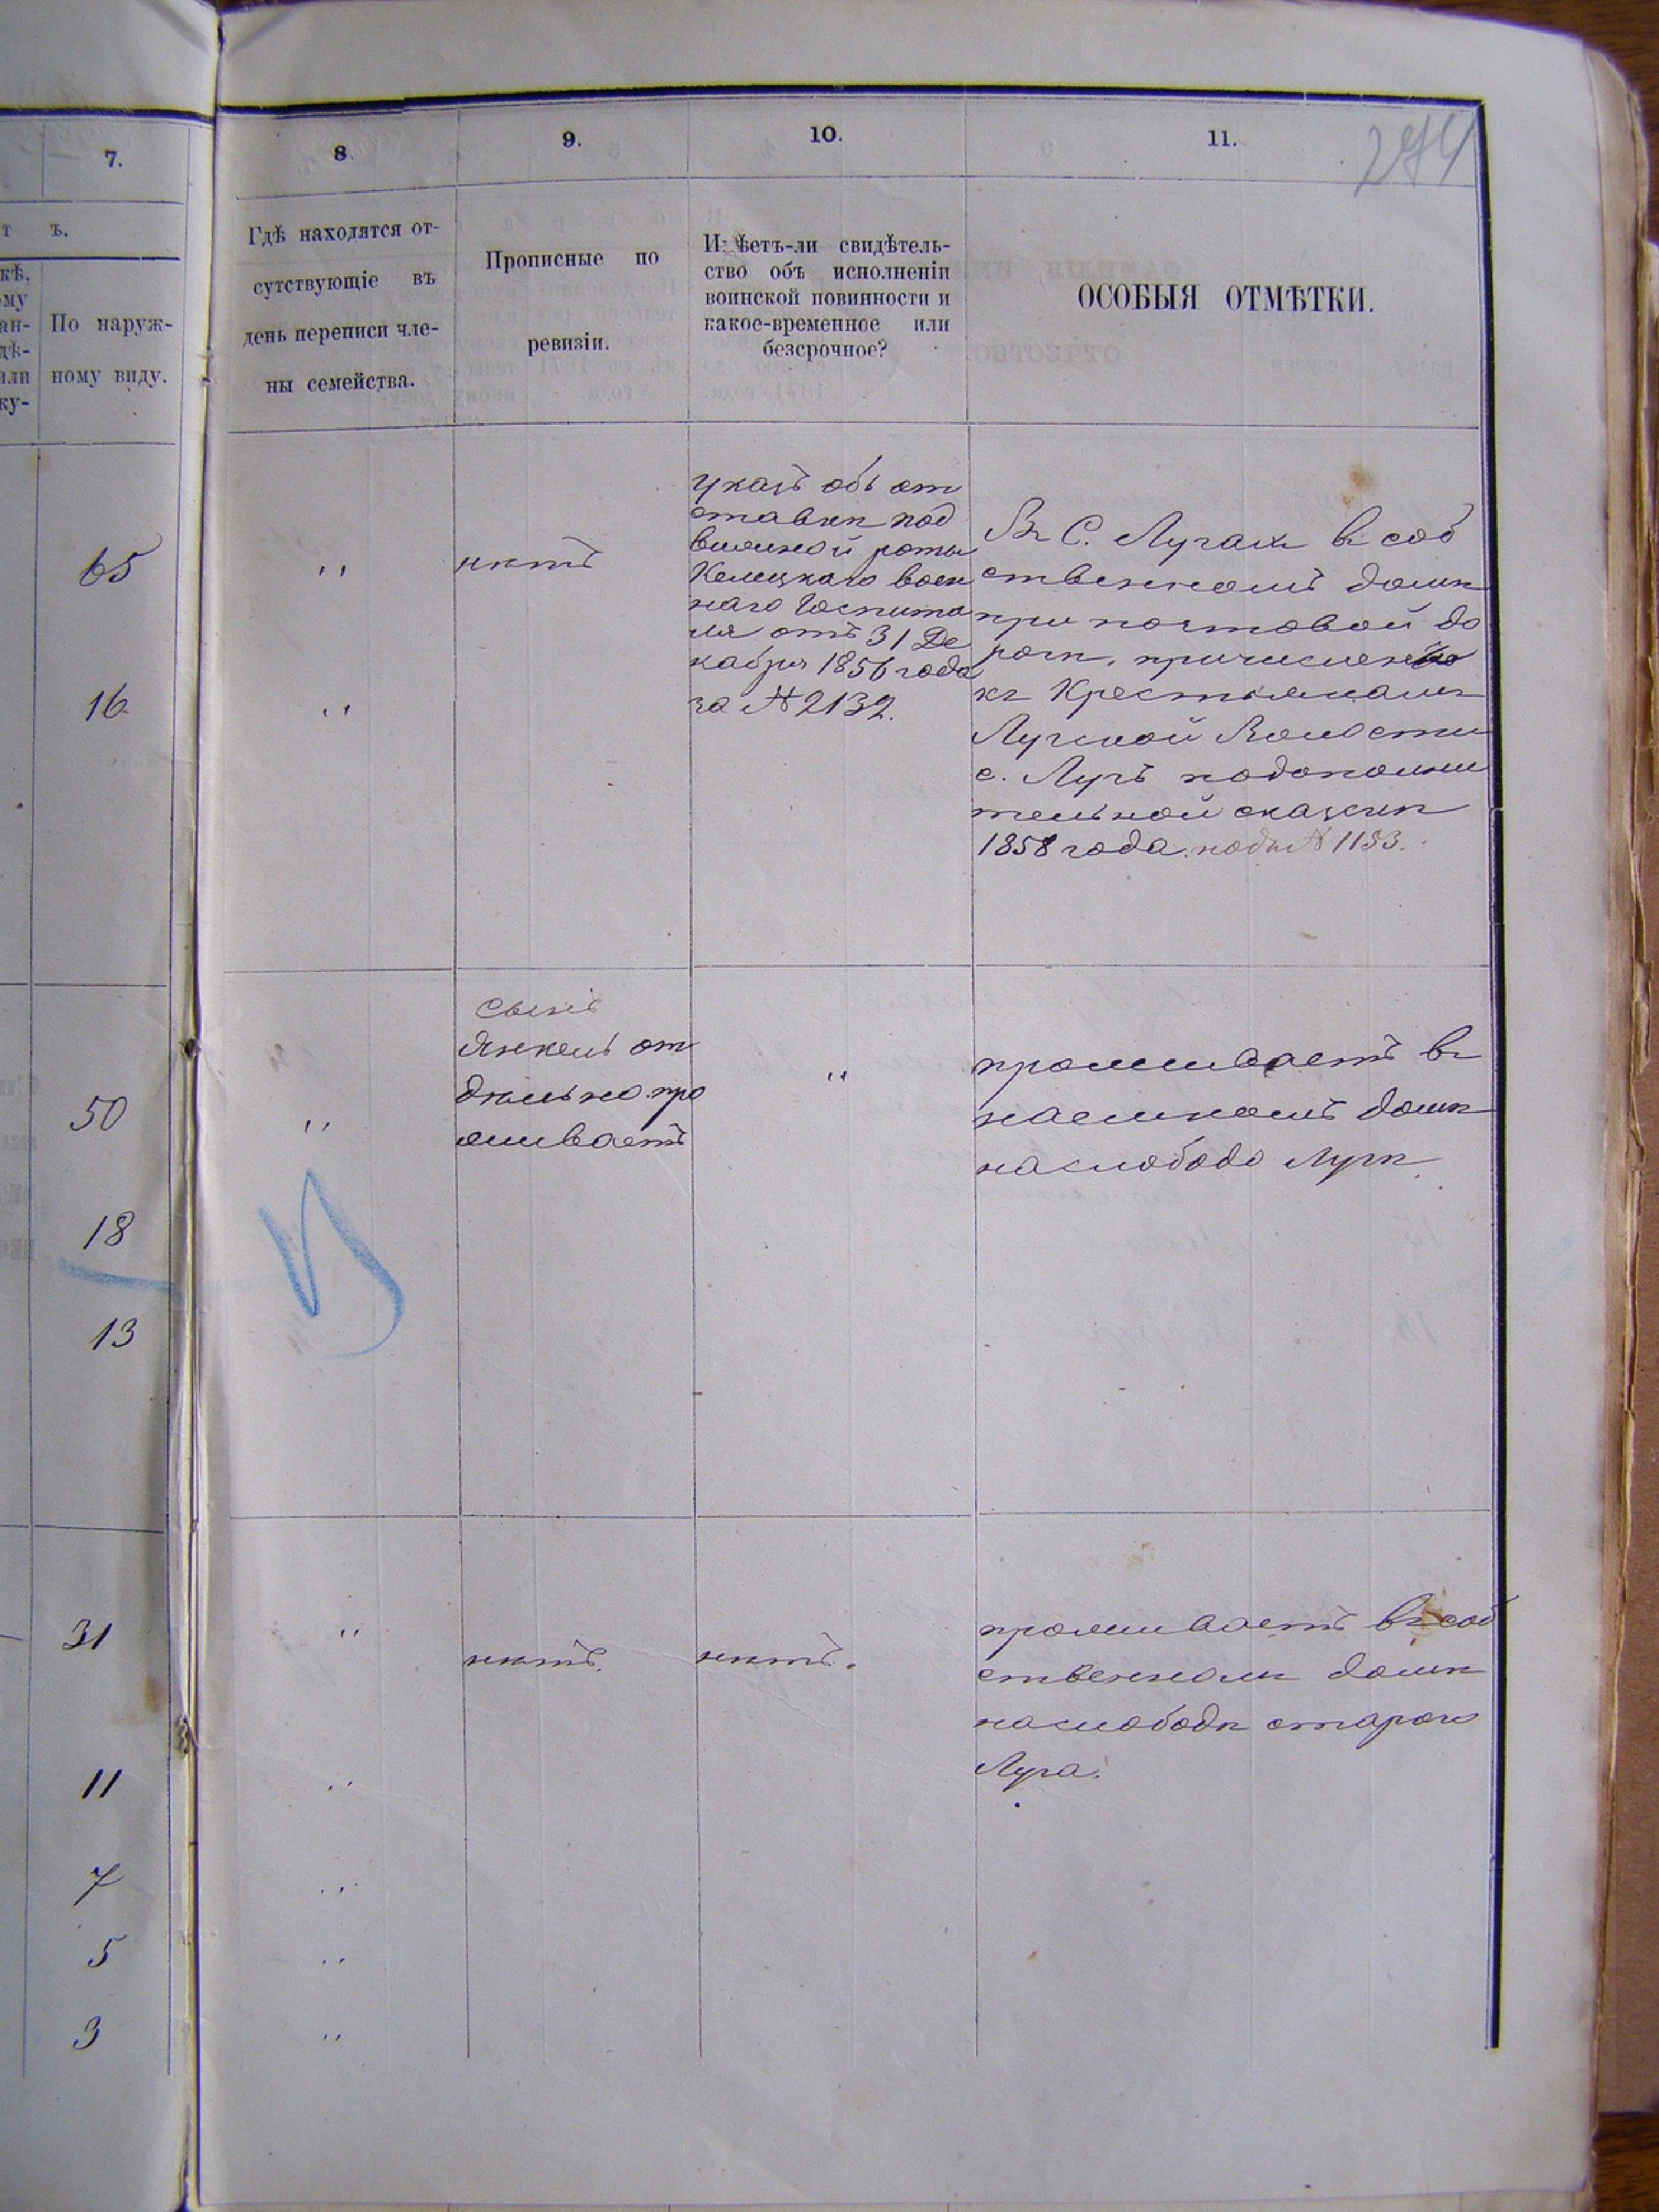 274
7.
8.
9.
10.
11.
т ъ.
кѣ,
ому
ан-
дѣ-
или
ку-
По наруж-
ному виду.
Гдѣ находятся от-
сутствующіе въ
день переписи чле-
ны семейства.
Прописные по
ревизіи.
Имѣетъ-ли свидѣтель-
ство объ исполненіи
воинской повинности и
какое-временное или
безсрочное?
ОСОБЫЯ ОТМѢТКИ.
65
"
нѣтъ
Указъ объ от
ставки под
вижной роты
Келецкаго воен
наго Госпита
ля отъ 31 Де
кабря 1856 года
за № 2132.
Въ С. Лугахъ въ соб
ственномъ домѣ
при почтовой до
рогѣ, причислен
къ Крестьянамъ
Лугской Волости
с. Лугъ по дополни
тельной сказкѣ
1858 года подъ № 1183.
16
"
50
"
сынъ
Янкель от
дѣльно про
живаетъ
"
проживаетъ въ
наемномъ домѣ
на слободѣ Лугѣ.
18
13
31
"
нѣтъ.
нѣтъ.
проживаетъ въ соб
ственномъ домѣ
на слободѣ старого
Луга.
11
"
7
"
5
"
3
"